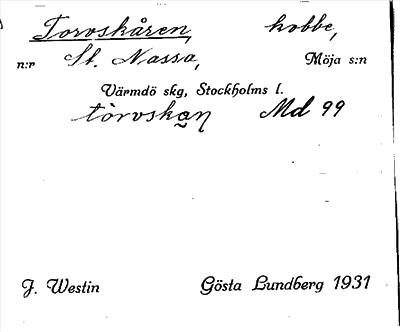 Torvskären, kobbe,
n:r St. Nassa, Möja s:n
Värmdö skg, Stockholms l.
tòrvskæ̣ṇ Md 99
J. Westin Gösta Lundberg 1931